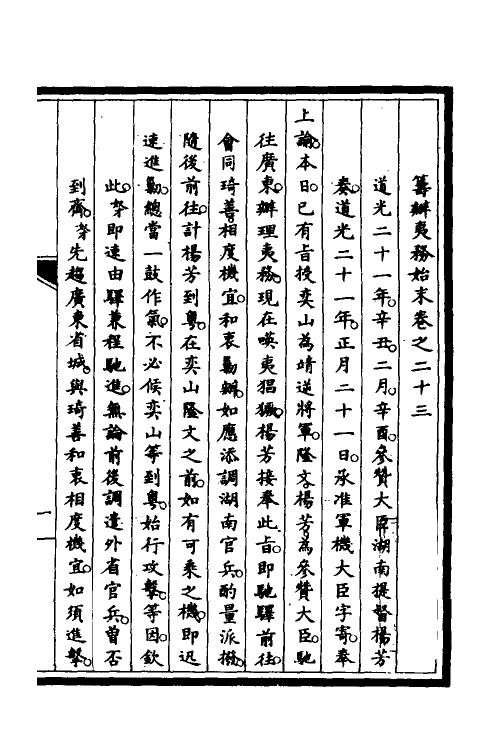 籌辦夷務始末卷之二十三
道光二十一年。辛丑。二月。辛酉。參贊大臣湖南提督楊芳
奏。道光二十一年。正月二十一日。承准軍機大臣字寄。奉
上諭。本日。已有旨授奕山為靖逆將軍。隆文。楊芳。為參贊大臣。馳
往廣東。辦理夷務。現在𠸄夷猖獗。楊芳接奉此旨。即馳驛前往。
會同琦善。相度機宜。和衷勦辦。如應添調湖南官兵。酌量派撥。
隨後前往。計楊芳到粵。在奕山隆文之前。如有可乘之機。即迅
速進勦。總當一鼓作氣。不必候奕山等到粵。始行攻擊。等因。欽
此。芳即速由驛兼程馳進。無論前後調遣外省官兵。曾否
到齊。芳先趨廣東省城。與琦善和衷相度機宜。如須進擊。
一